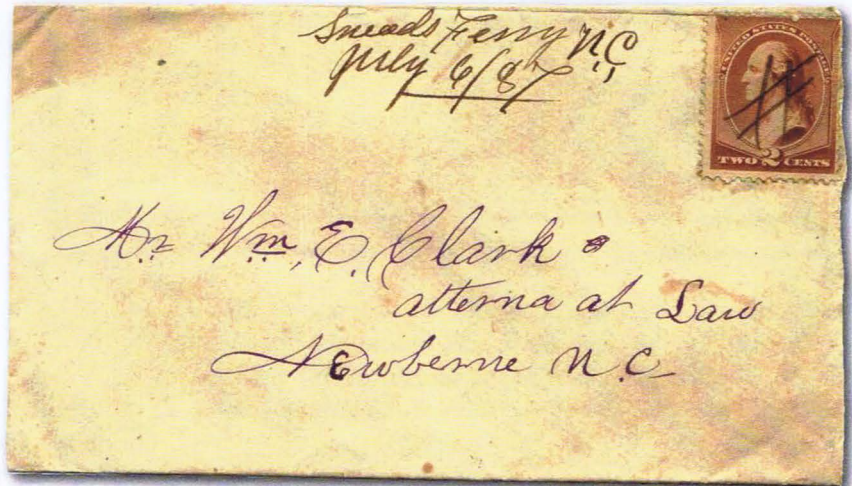 Sneads Ferry N.C,
July 6/87
UNITED STATES POSTAGE
TWO 2 CENTS
Mr. Wm, E. Clark
atterna at Law
Newberne N.C.